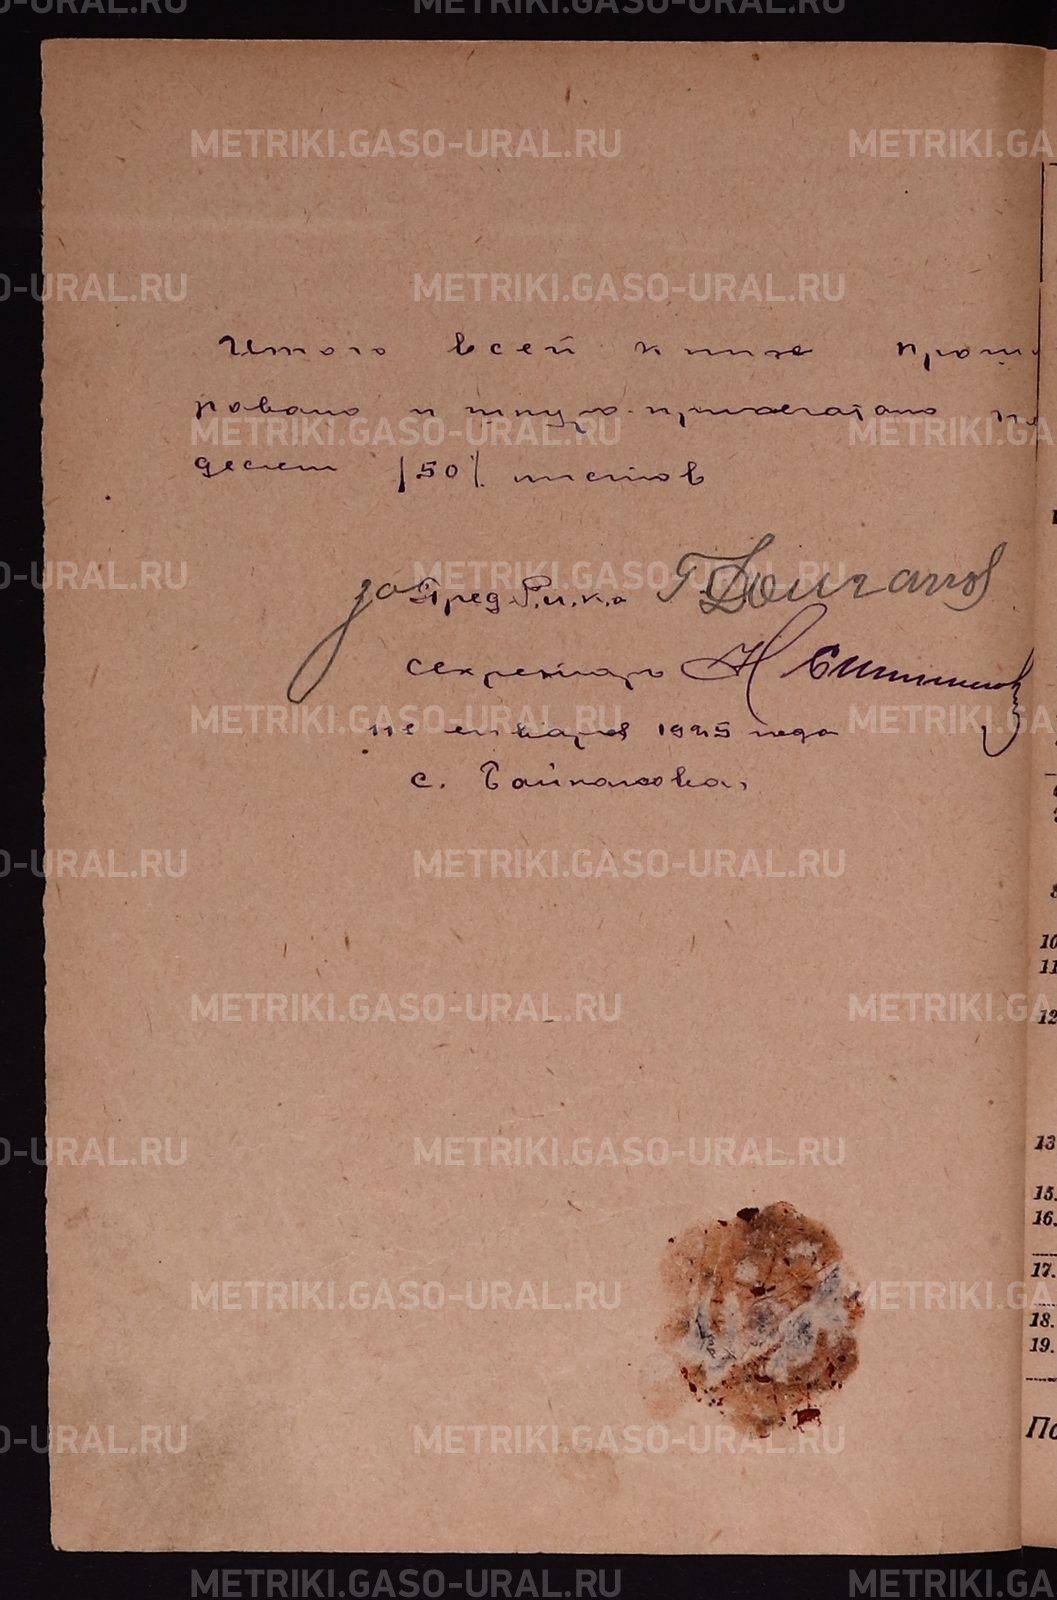 METRIKI.GASO-URAL.RU METRIKI.GASO-URAL.RU
METRIKI.GASO-URAL.RU METRIKI.GA
O-URAL.RU METRIKI.GASO-URAL.RU
Итого всей книге прош
ровано и шнуро-припечатано пя
METRIKI.GASO-URAL.RU METRIKI.GA
десят /50/. листов
O-URAL.RU METRIKI.GASO-URAL.RU
за Пред Р.и.к.а
секретарь
METRIKI.GASO-URAL.RU METRIKI.GA
января 1925 года
с. Байкалова,
O-URAL.RU METRIKI.GASO-URAL.RU
10
11
METRIKI.GASO-URAL.RU METRIKI.GA
12
O-URAL.RU METRIKI.GASO-URAL.RU
13
15.
16.
17.
METRIKI.GASO-URAL.RU METRIKI.GA
18.
19.
По
O-URAL.RU METRIKI.GASO-URAL.RU
METRIKI.GASO-URAL.RU METRIKI.GA